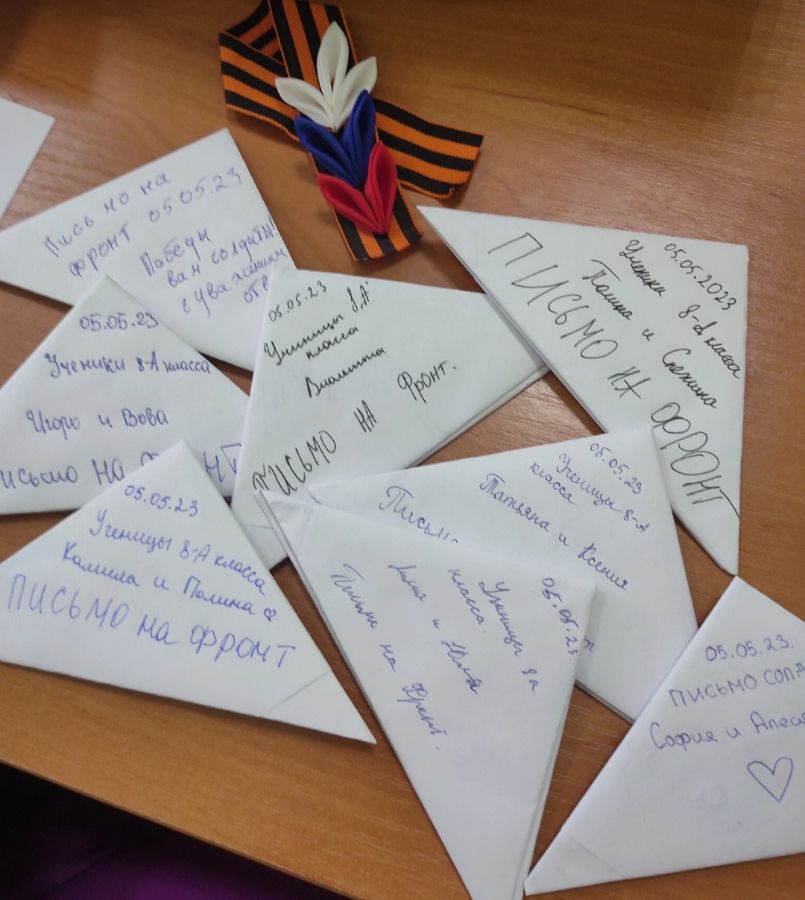 Письмо на
фронт 05.05.23
Победы
вам солдаты!
с уважением
05.05.2023
Ученики 8-А класса
Полина и Снежана
ПИСЬМО НА ФРОНТ
05.05.23
Ученицы 8„А"
класса
Виолетта
ПИСЬМО НА ФРОНТ.
05.05.23
Ученики 8-А класса
Игорь и Вова
05.05.23
Ученицы 8-А класса
Камила и Полина
ПИСЬМО НА ФРОНТ
05.05.23
Ученицы 8-А
класса
Татьяна и Ксения
05.05.23
Ученицы 8а
класса.
и Юля
Письмо на фронт.
05.05.23.
ПИСЬМО
София и